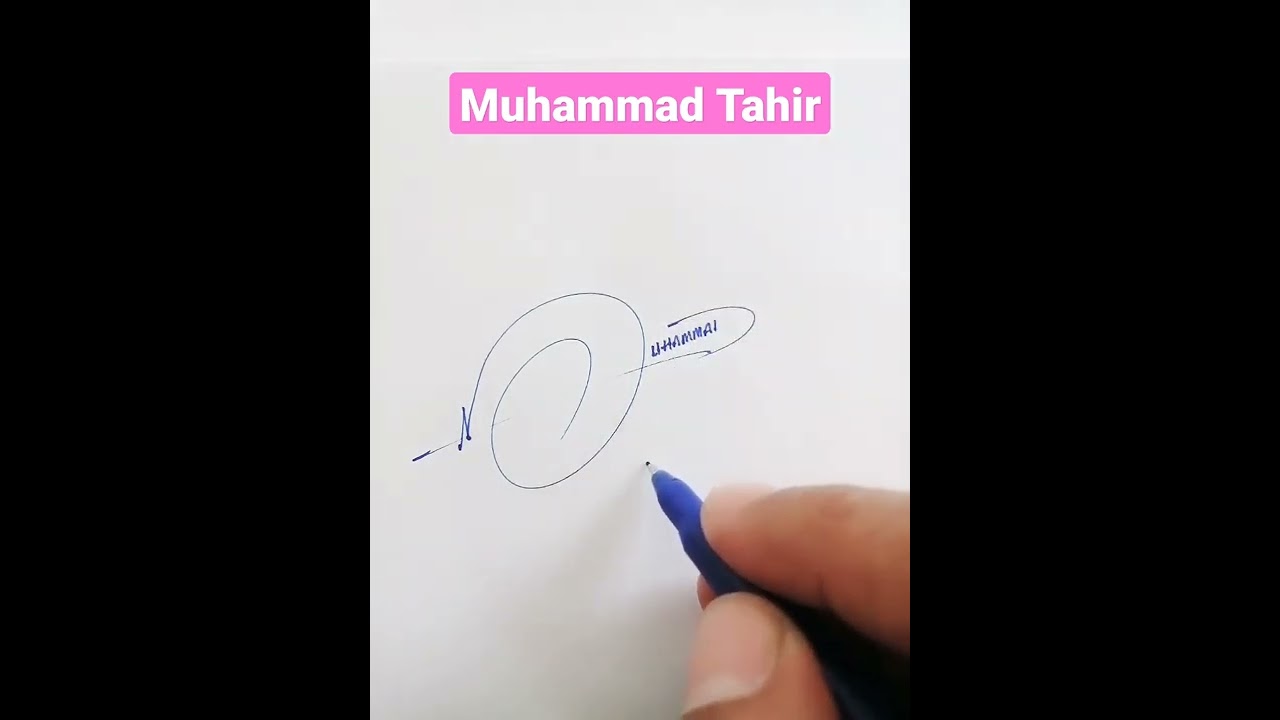 Muhammad Tahir
UHAMMAI